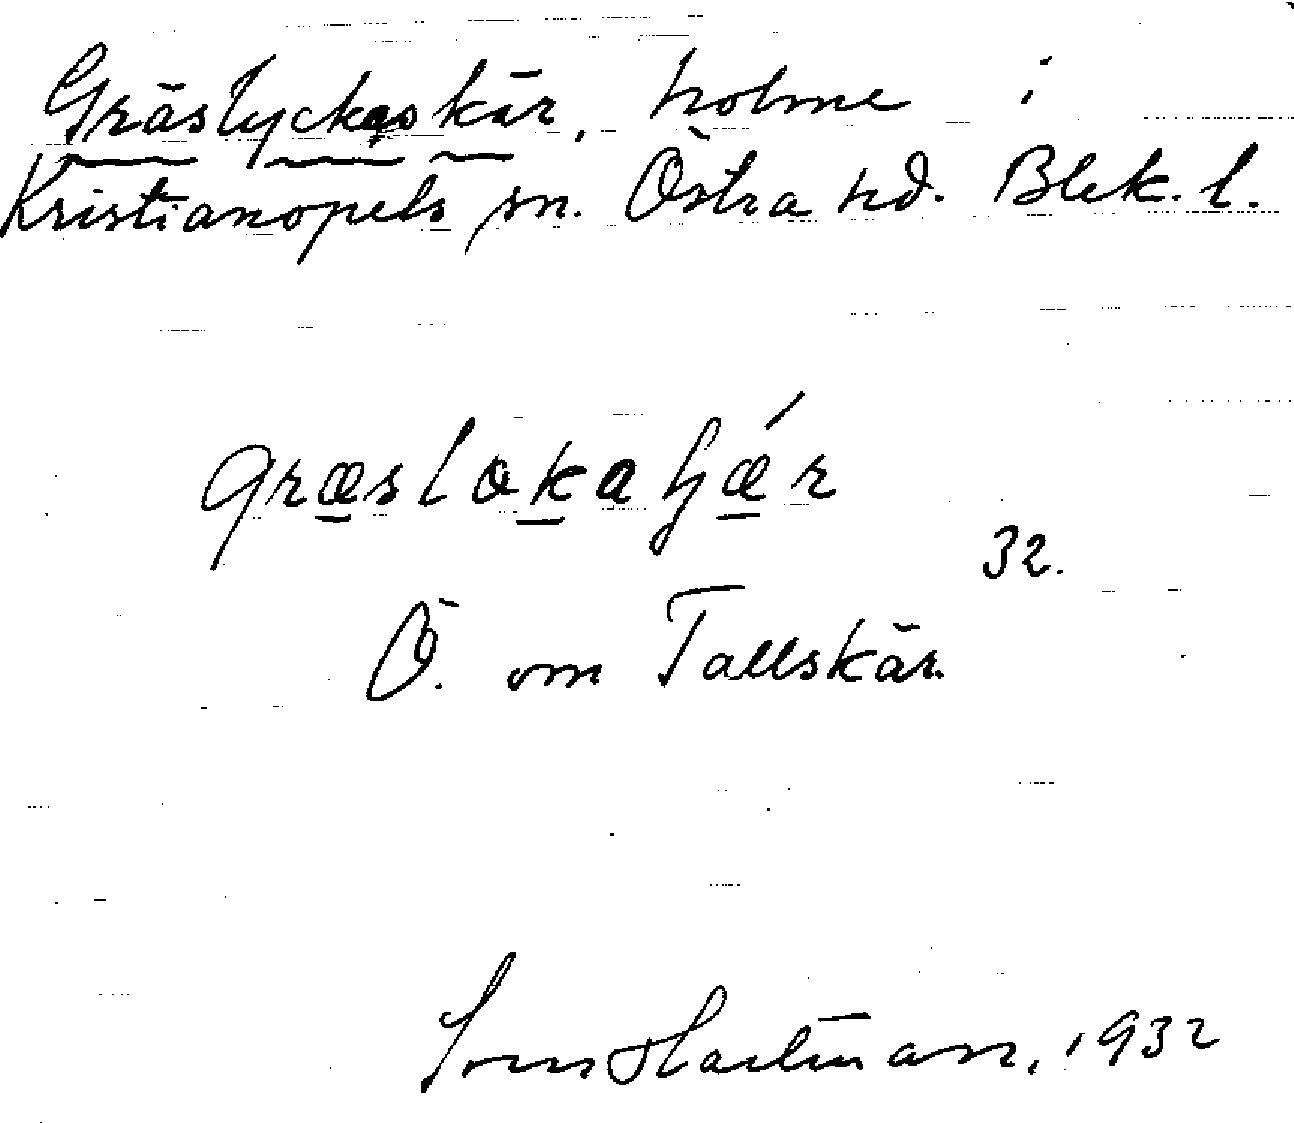 Gräslyckeskär, holme i
Kristianopels sn. Östra hd. Blek. l.
græslokaʃǽr
32.
Ö. om Tallskär.
Hartman, 1932